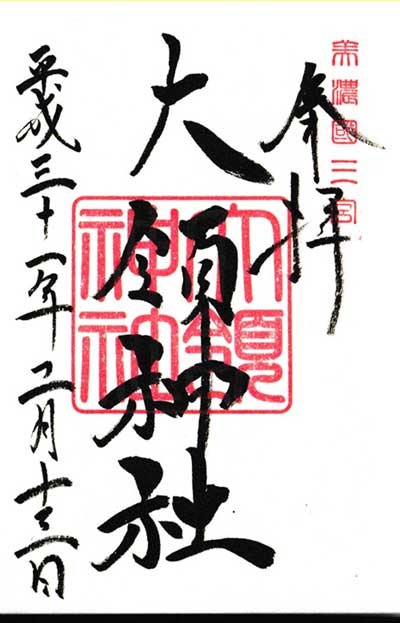 美濃國三宮
奉拝
大領神社
大領神社
平成三十一年二月十三日